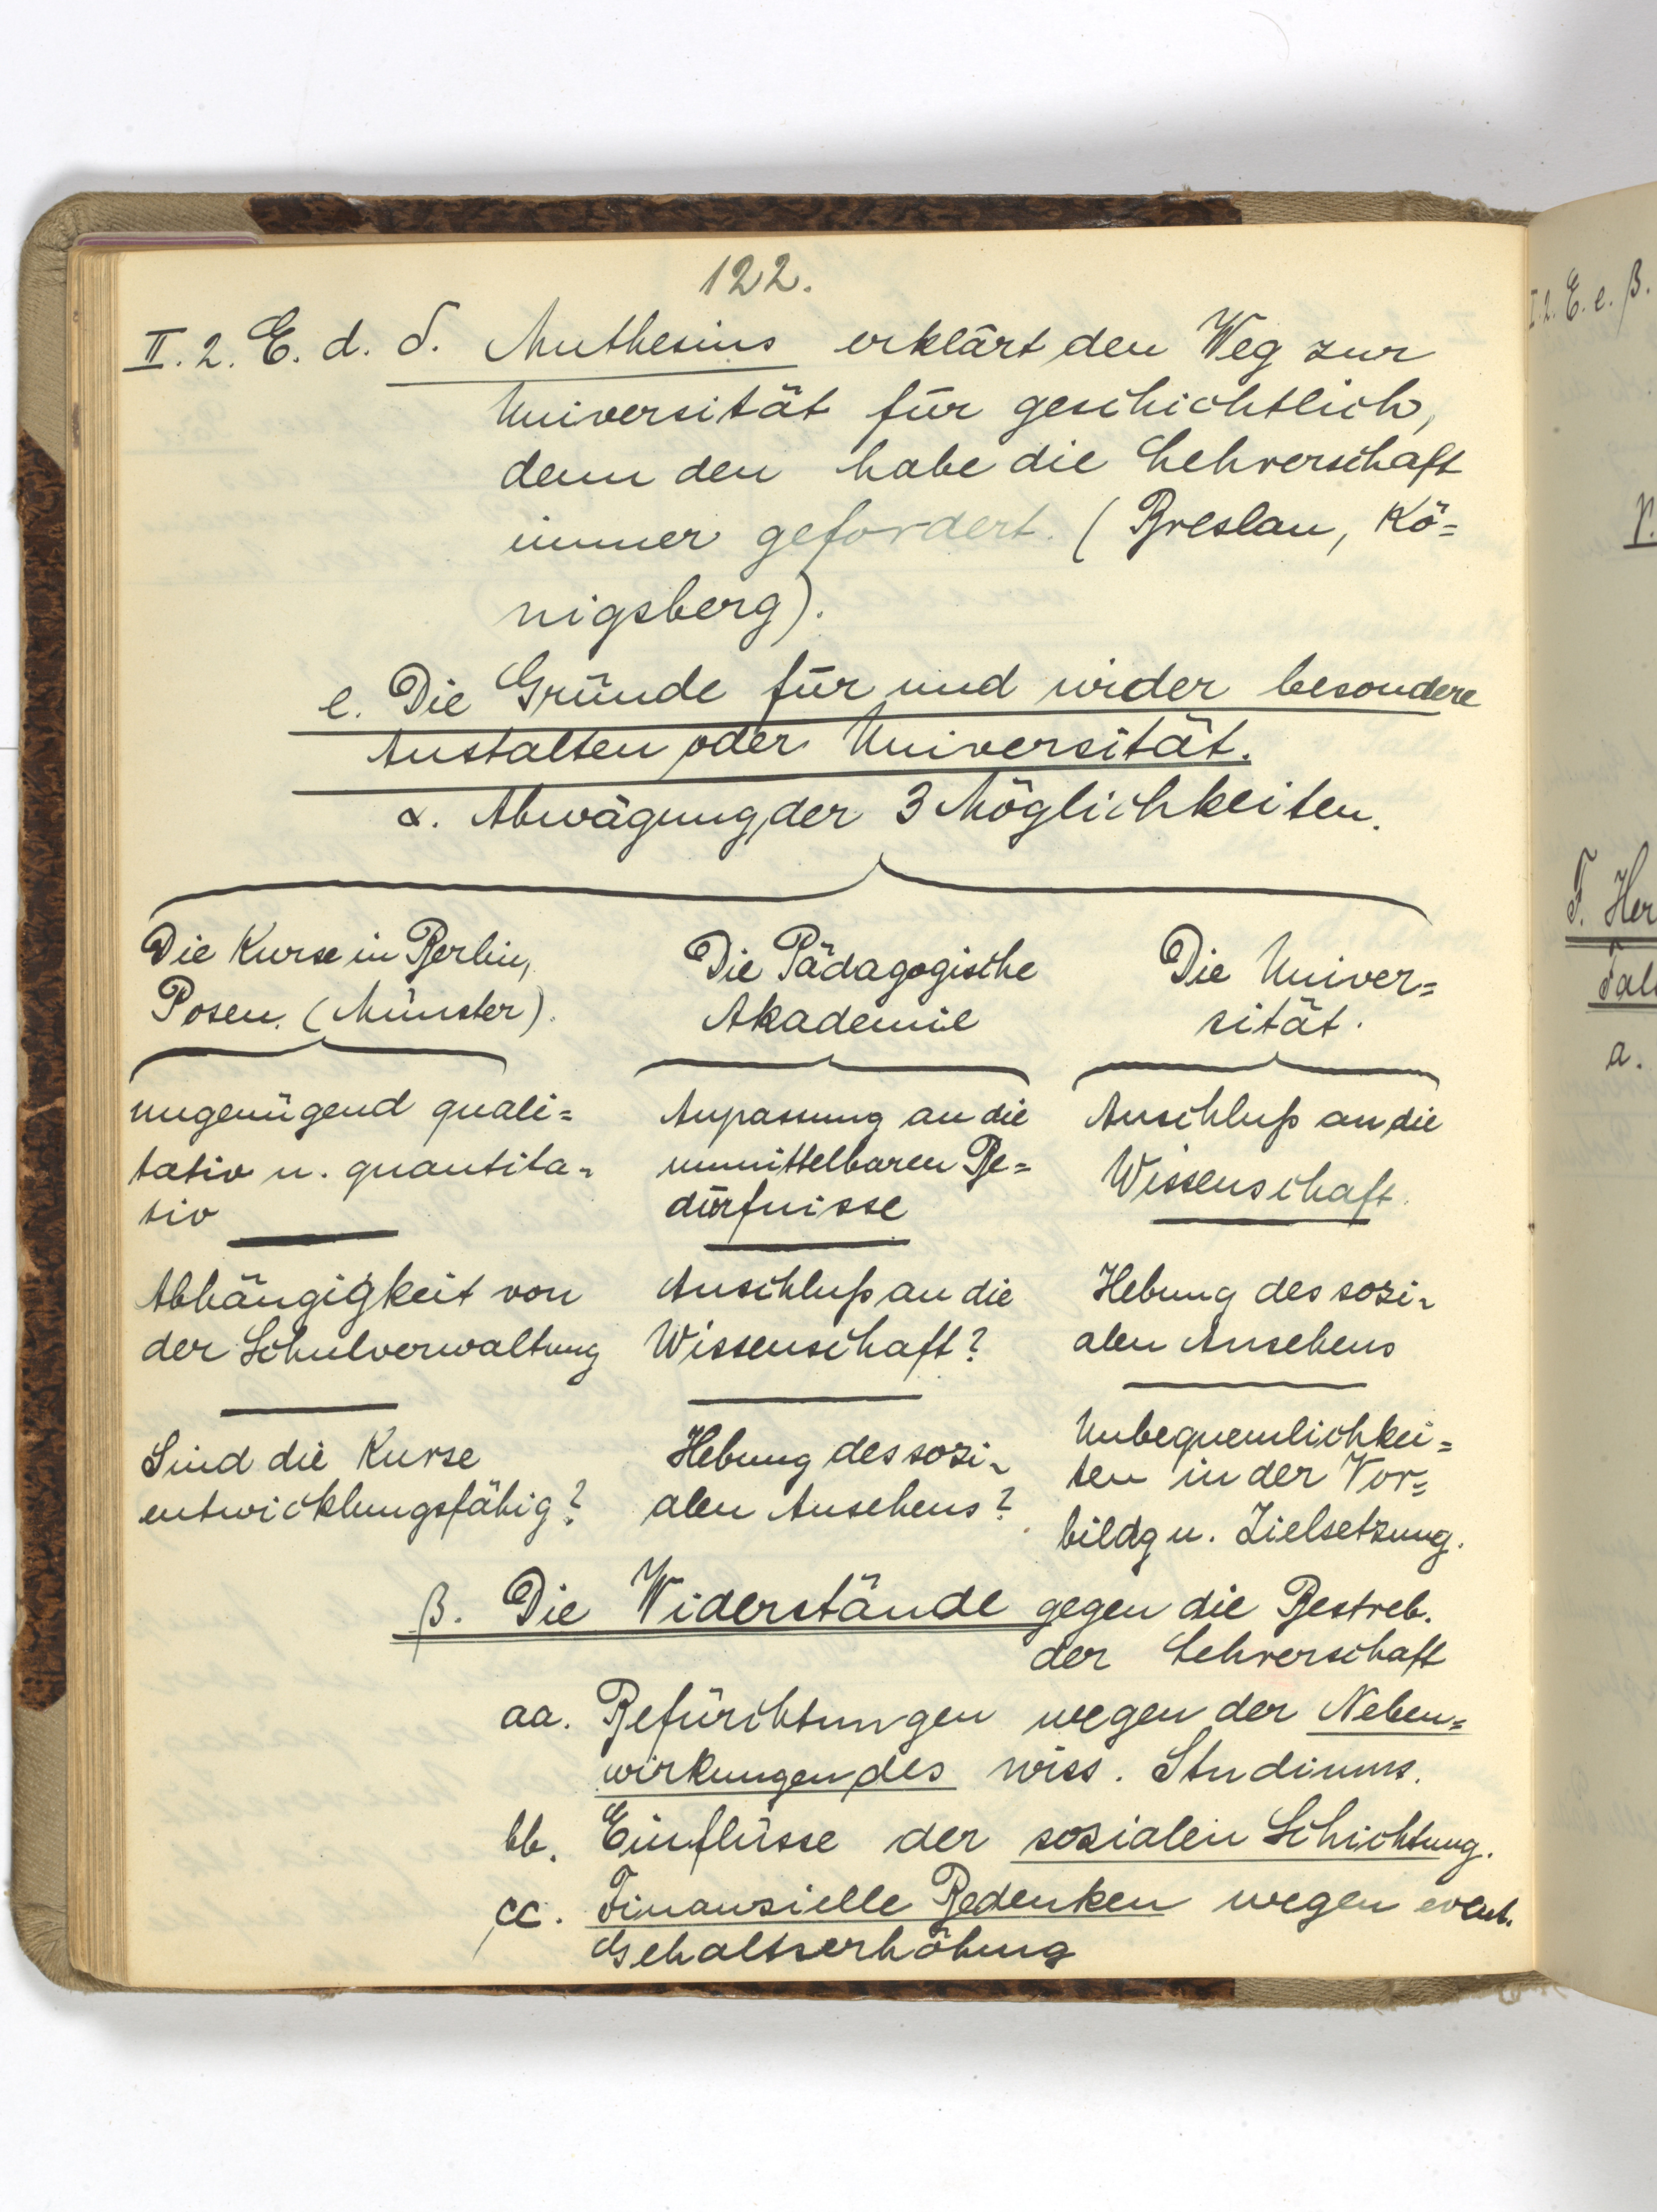 122.
II. 2. E. d. δ. Muthesius erklärt den Weg zur
Universität für geschichtlich,
denn den habe die Lehrerschaft
immer gefordert. (Breslau, Kö=
nigsberg).
e. Die Gründe für und wider besondere
Anstalten oder Universität.
α. Abwägung der 3 Möglichkeiten.
Die Kurse in Berlin,
Posen. (Münster).
ungenügend quali=
tativ u. quantita=
tiv
Abhängigkeit von
der Schulverwaltung
Sind die Kurse
entwicklungsfähig?
Die Pädagogische
Akademie
Anpassung an die
unmittelbaren Be=
dürfnisse
Anschluß an die
Wissenschaft?
Hebung des sozi=
alen Ansehens?
Die Univer=
sität.
Anschluß an die
Wissenschaft.
Hebung des sozi=
alen Ansehens
Unbequemlichkei=
ten in der Vor=
bildg u. Zielsetzung.
β. Die Widerstände gegen die Bestreb.
der Lehrerschaft
aa. Befürchtungen wegen der Neben=
wirkungen des wiss. Studiums.
bb. Einflüsse der sozialen Schichtung.
cc. Finanzielle Bedenken wegen event.
Gehaltserhöhung
I. 2. E. e. β.
γ.
F. Her
a.